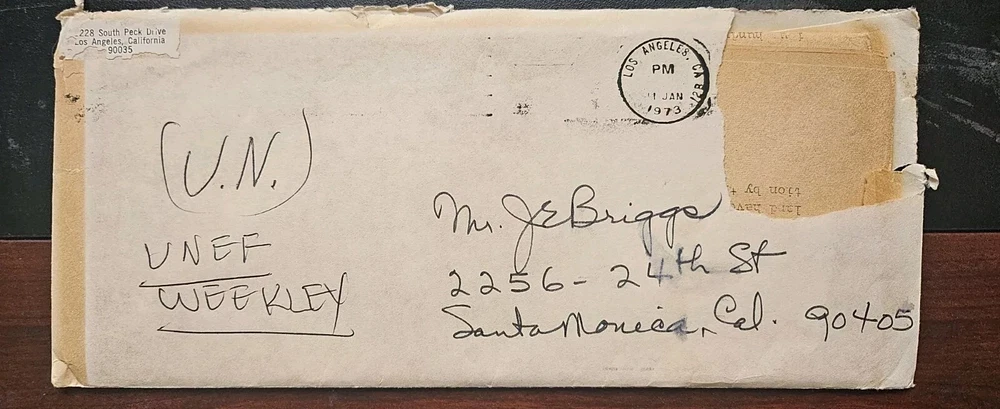 228 South Peck Drive
Los Angeles, California
90035
LOS ANGELES, CA
PM
11 JAN
1973
(U.N.)
UNEF
WEEKLEY
Mr. JEBriggs
2256 - 24th St
Santa Monica, Cal. 90405
tion by